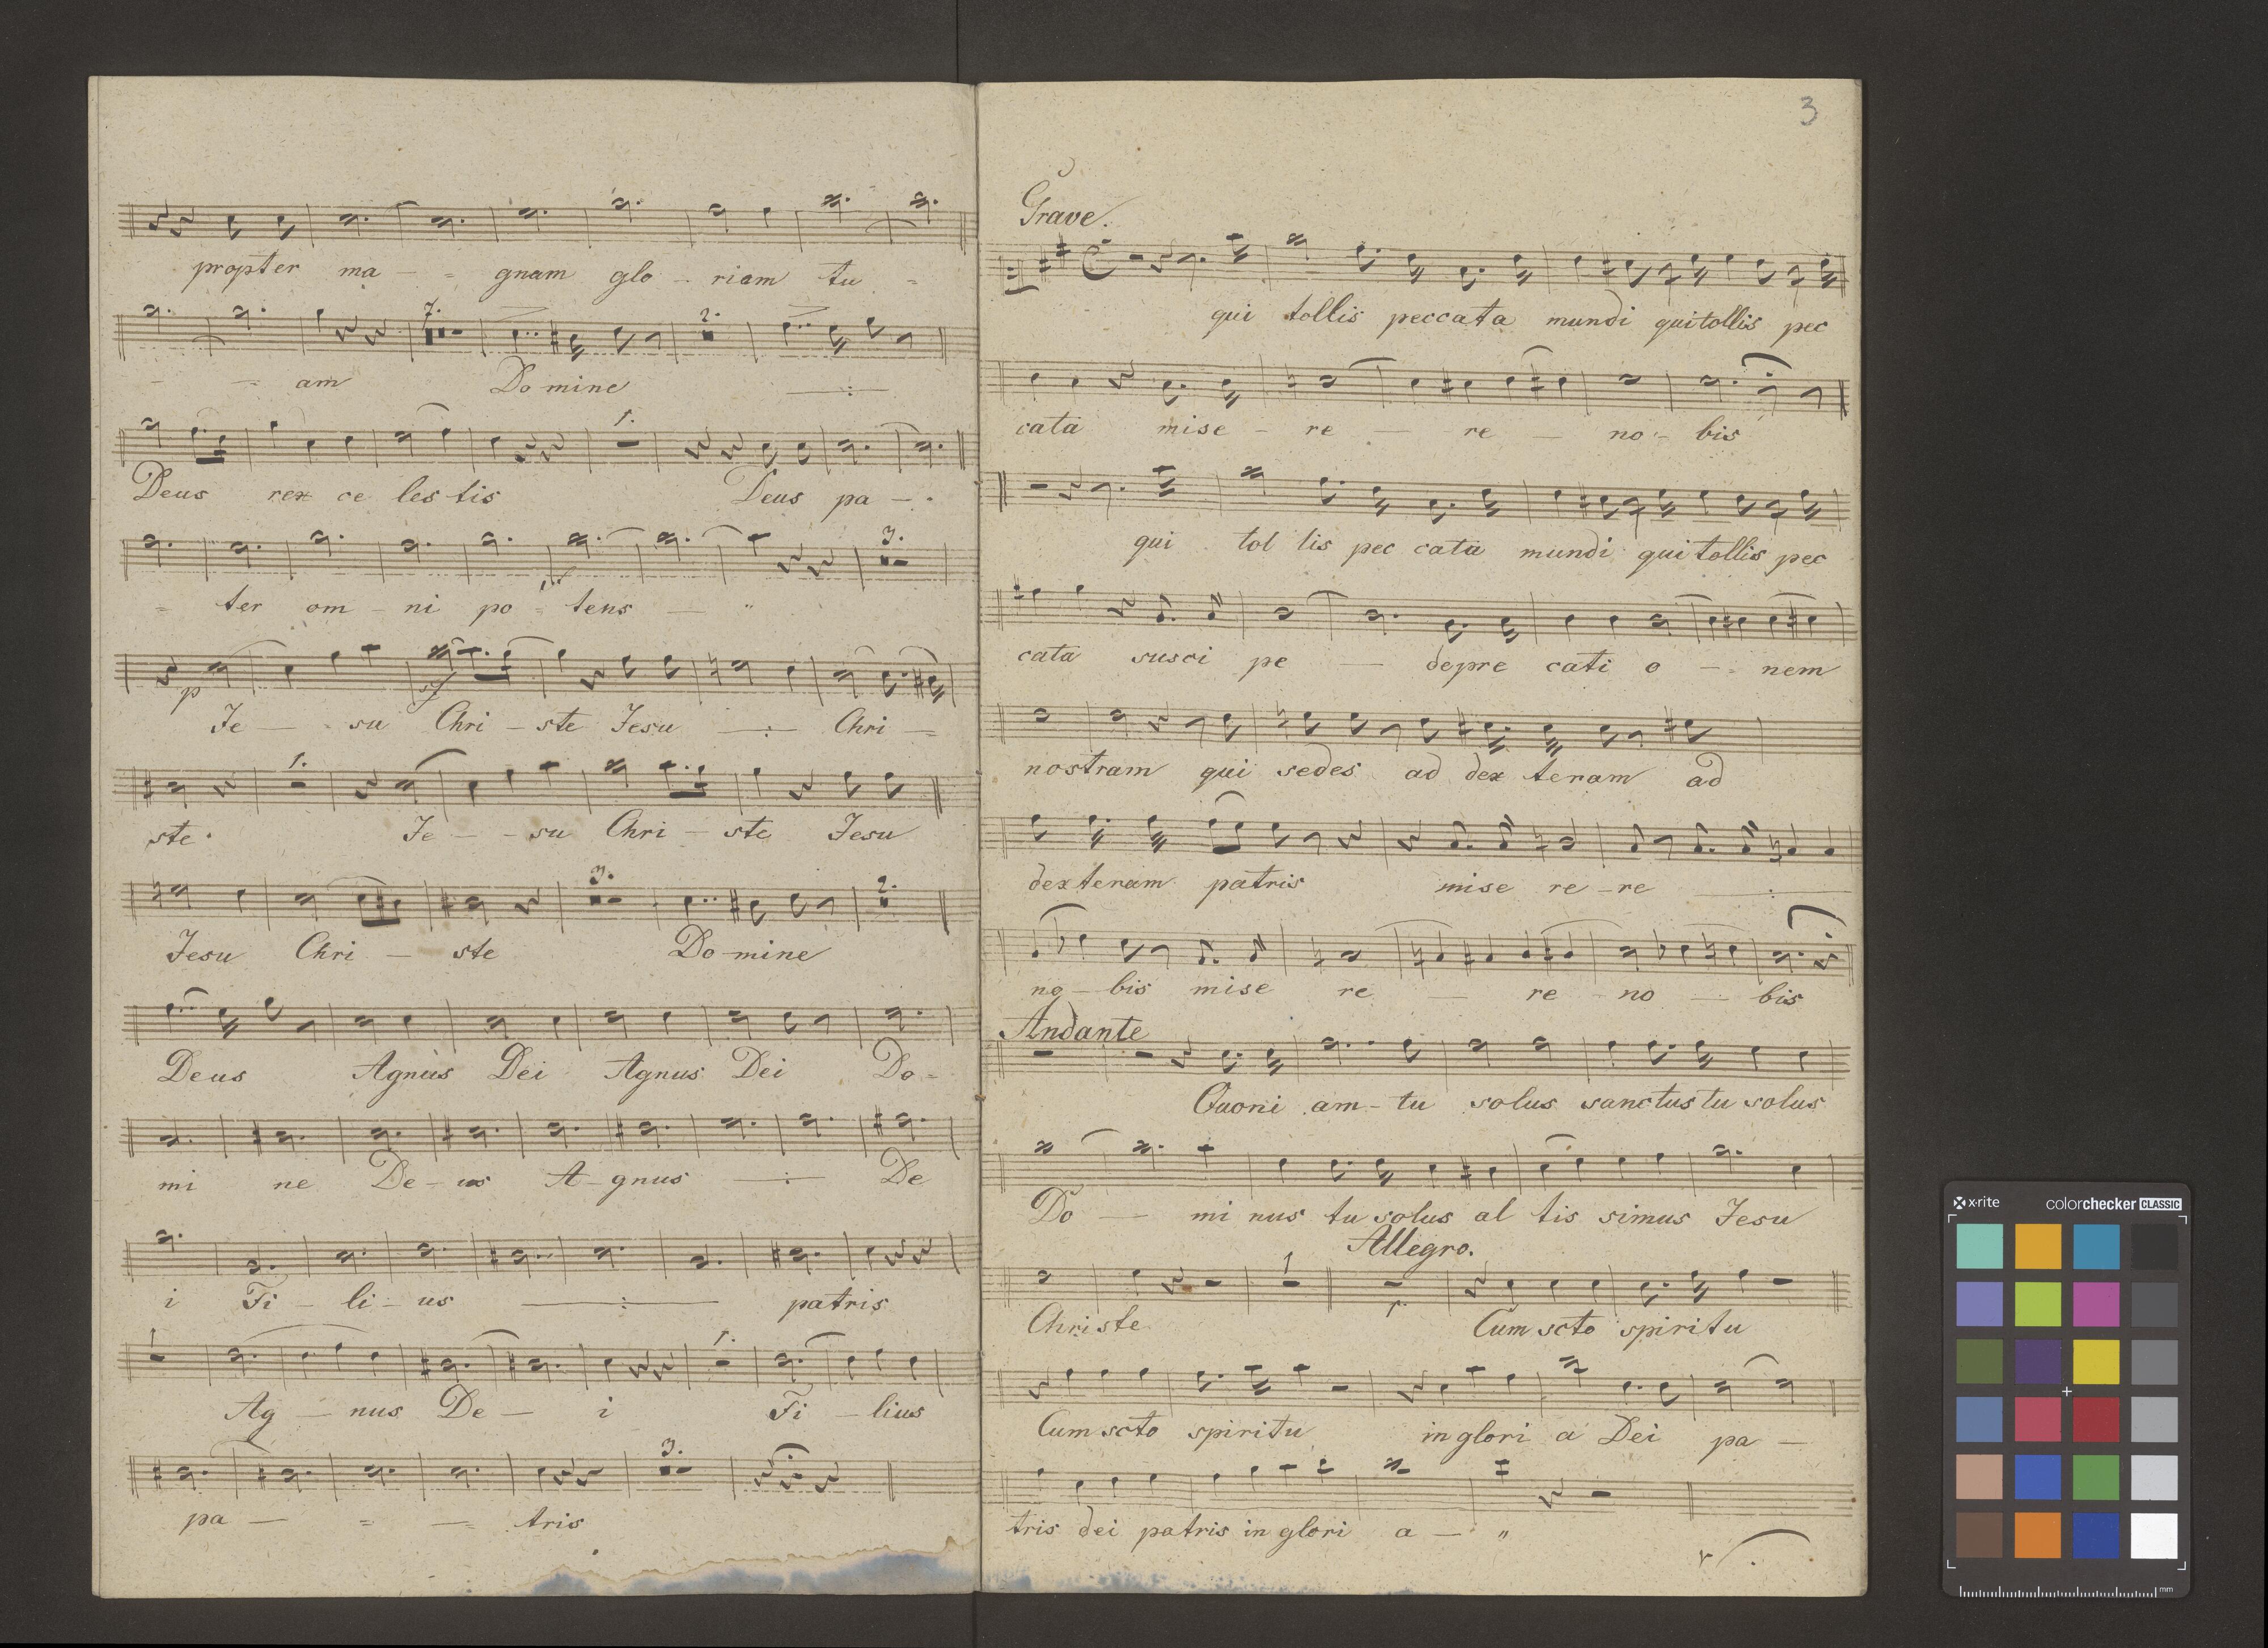 propter ma - = gnam glo - riam tu =
7. 2.
- = am Domine —:—
1.
Deus rex ce lestis Deus pa - .
3.
= ter om - ni po = tens — "
p sf
Je — - su Chri - ste Jesu —:— Chri —
1.
ste. Je - - su Chri - ste Jesu
3. 2.
Jesu Chri — ste Do-mine
Deus Agnus Dei Agnus Dei Do -
mi ne De - us A - gnus —:— De
i Fi - li - us —:— patris
1 1.
Ag — nus De — i Fi - lius
3.
pa — = — tris
3
Grave.
qui tollis peccata mundi qui tollis pec
cata mise - re — re — no - bis
qui tol lis pec cata mundi qui tollis pec
cata susci pe — depre cati o - = nem
nostram qui sedes ad dex teram ad
dexteram patris mise re - re —:—
no - bis mise re — re - no — bis
Andante
Quoni am - tu solus sanctus tu solus
Do — mi nus tu solus al tis simus Jesu
Allegro.
1 1.
Christe Cum scto spiritu
Cum scto spiritu in glori a Dei pa —
tris dei patris in glori a — "
x·rite colorchecker CLASSIC
mm